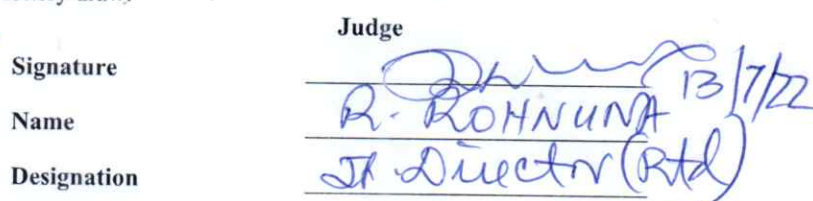 Judge
Signature 13/7/22
Name R. ROHNUNA
Designation Jt. Director (Rtd)